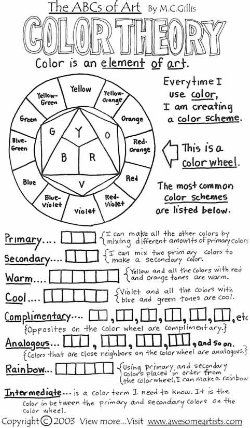 The ABCs of Art By M.C. Gillis
COLOR THEORY
Color is an element of art.
Yellow
Yellow-Orange
Orange
Red-Orange
Red
Red-Violet
Violet
Blue-Violet
Blue
Blue-Green
Green
Yellow-Green
Y
O
R
V
B
G
Everytime I
use color,
I am creating
a color scheme.
This is a
color wheel.
The most common
color schemes
are listed below.
Primary.... {I can make all the other colors by
mixing different amounts of primary colors
Secondary.... {I can mix two primary colors to
make a secondary color.
Warm.... {Yellow and all the colors with red
and orange tones are warm.
Cool.... {Violet and all the colors with
blue and green tones are cool.
Complimentary.... , , , , , etc.
{Opposites on the color wheel are complimentary.}
Analogous.... , , , and so on.
{Colors that are close neighbors on the color wheel are analogous.}
Rainbow... {Using primary, and secondary
colors placed in order from
the color wheel, I can make a rainbow
Intermediate... is a color term I need to know. It is the
color in between the primary and secondary colors on the
color wheel.
Copyright © 2003 View more...Visit www.awesomeartists.com